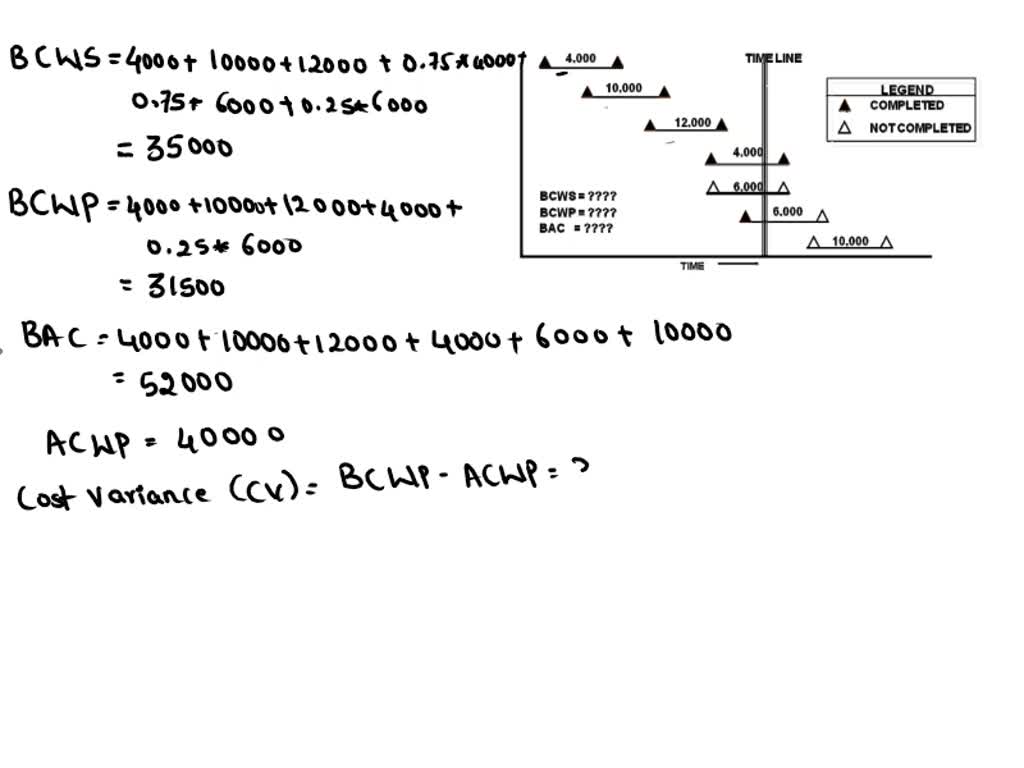 BCWS = 4000 + 10000 + 12000 + 0.75 * 4000 +
0.75 * 6000 + 0.25 * 6000
= 35000
BCWP = 4000 + 10000 + 12000 + 4000 +
0.25 * 6000
= 31500
BAC = 4000 + 10000 + 12000 + 4000 + 6000 + 10000
= 52000
ACWP = 40000
Cost Variance (CV) = BCWP - ACWP = ?
4.000
TIME LINE
10.000
12.000
4.000
6.000
6.000
10.000
BCWS = ????
BCWP = ????
BAC = ????
TIME
LEGEND
▲ COMPLETED
△ NOT COMPLETED